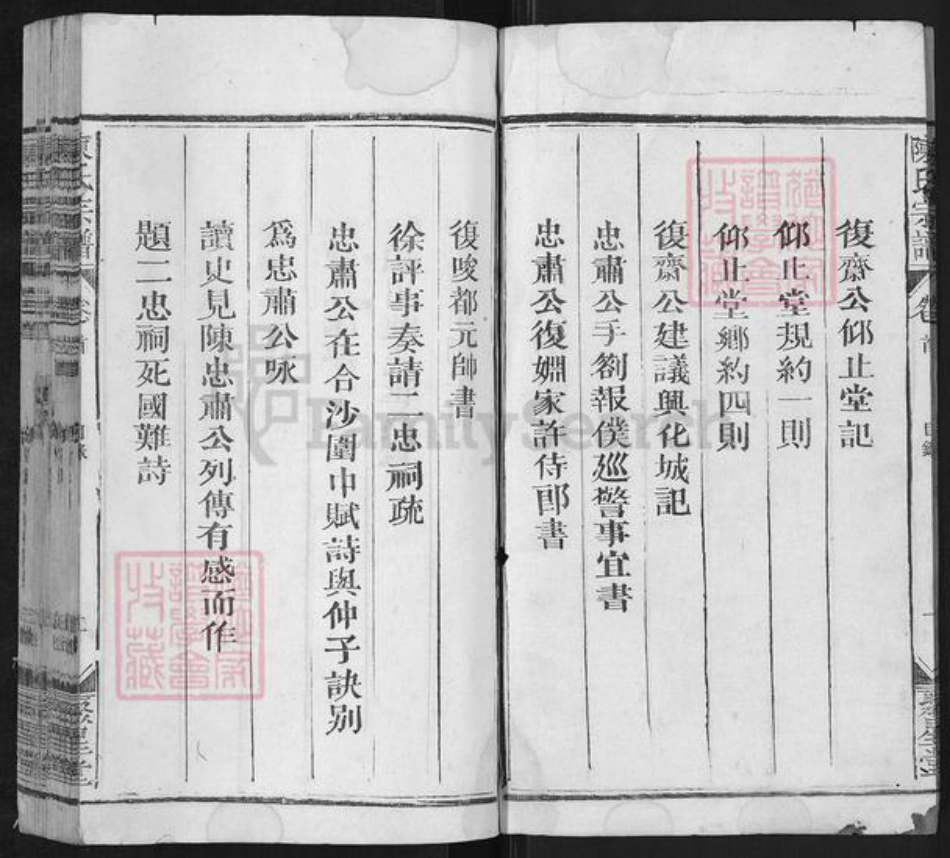 陳氏宗譜
復齋公仰止堂記
仰止堂規約一則
仰止堂鄉約四則
復齋公建議興化城記
忠肅公手劄報僕巡警事宜書
忠肅公復姻家許侍郎書
復唆都元帥書
徐評事奏請二忠祠疏
忠肅公在合沙圍中賦詩與仲子訣別
爲忠肅公咏
讀史見陳忠肅公列傳有感而作
題二忠祠死國難詩
陳氏宗譜
卷首
目錄
二
聚星堂
FamilySearch